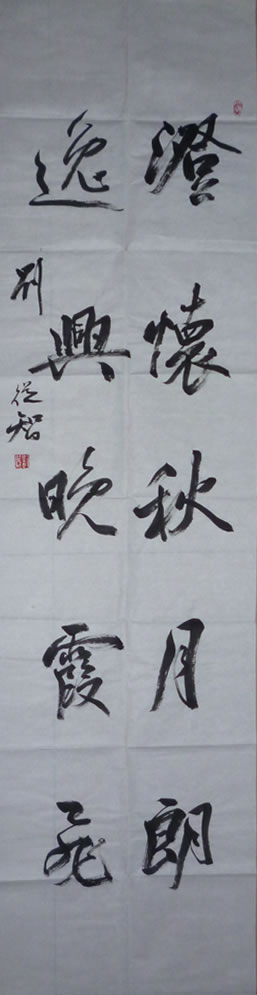 澄懷秋月朗
逸興晚霞飛
劉從智